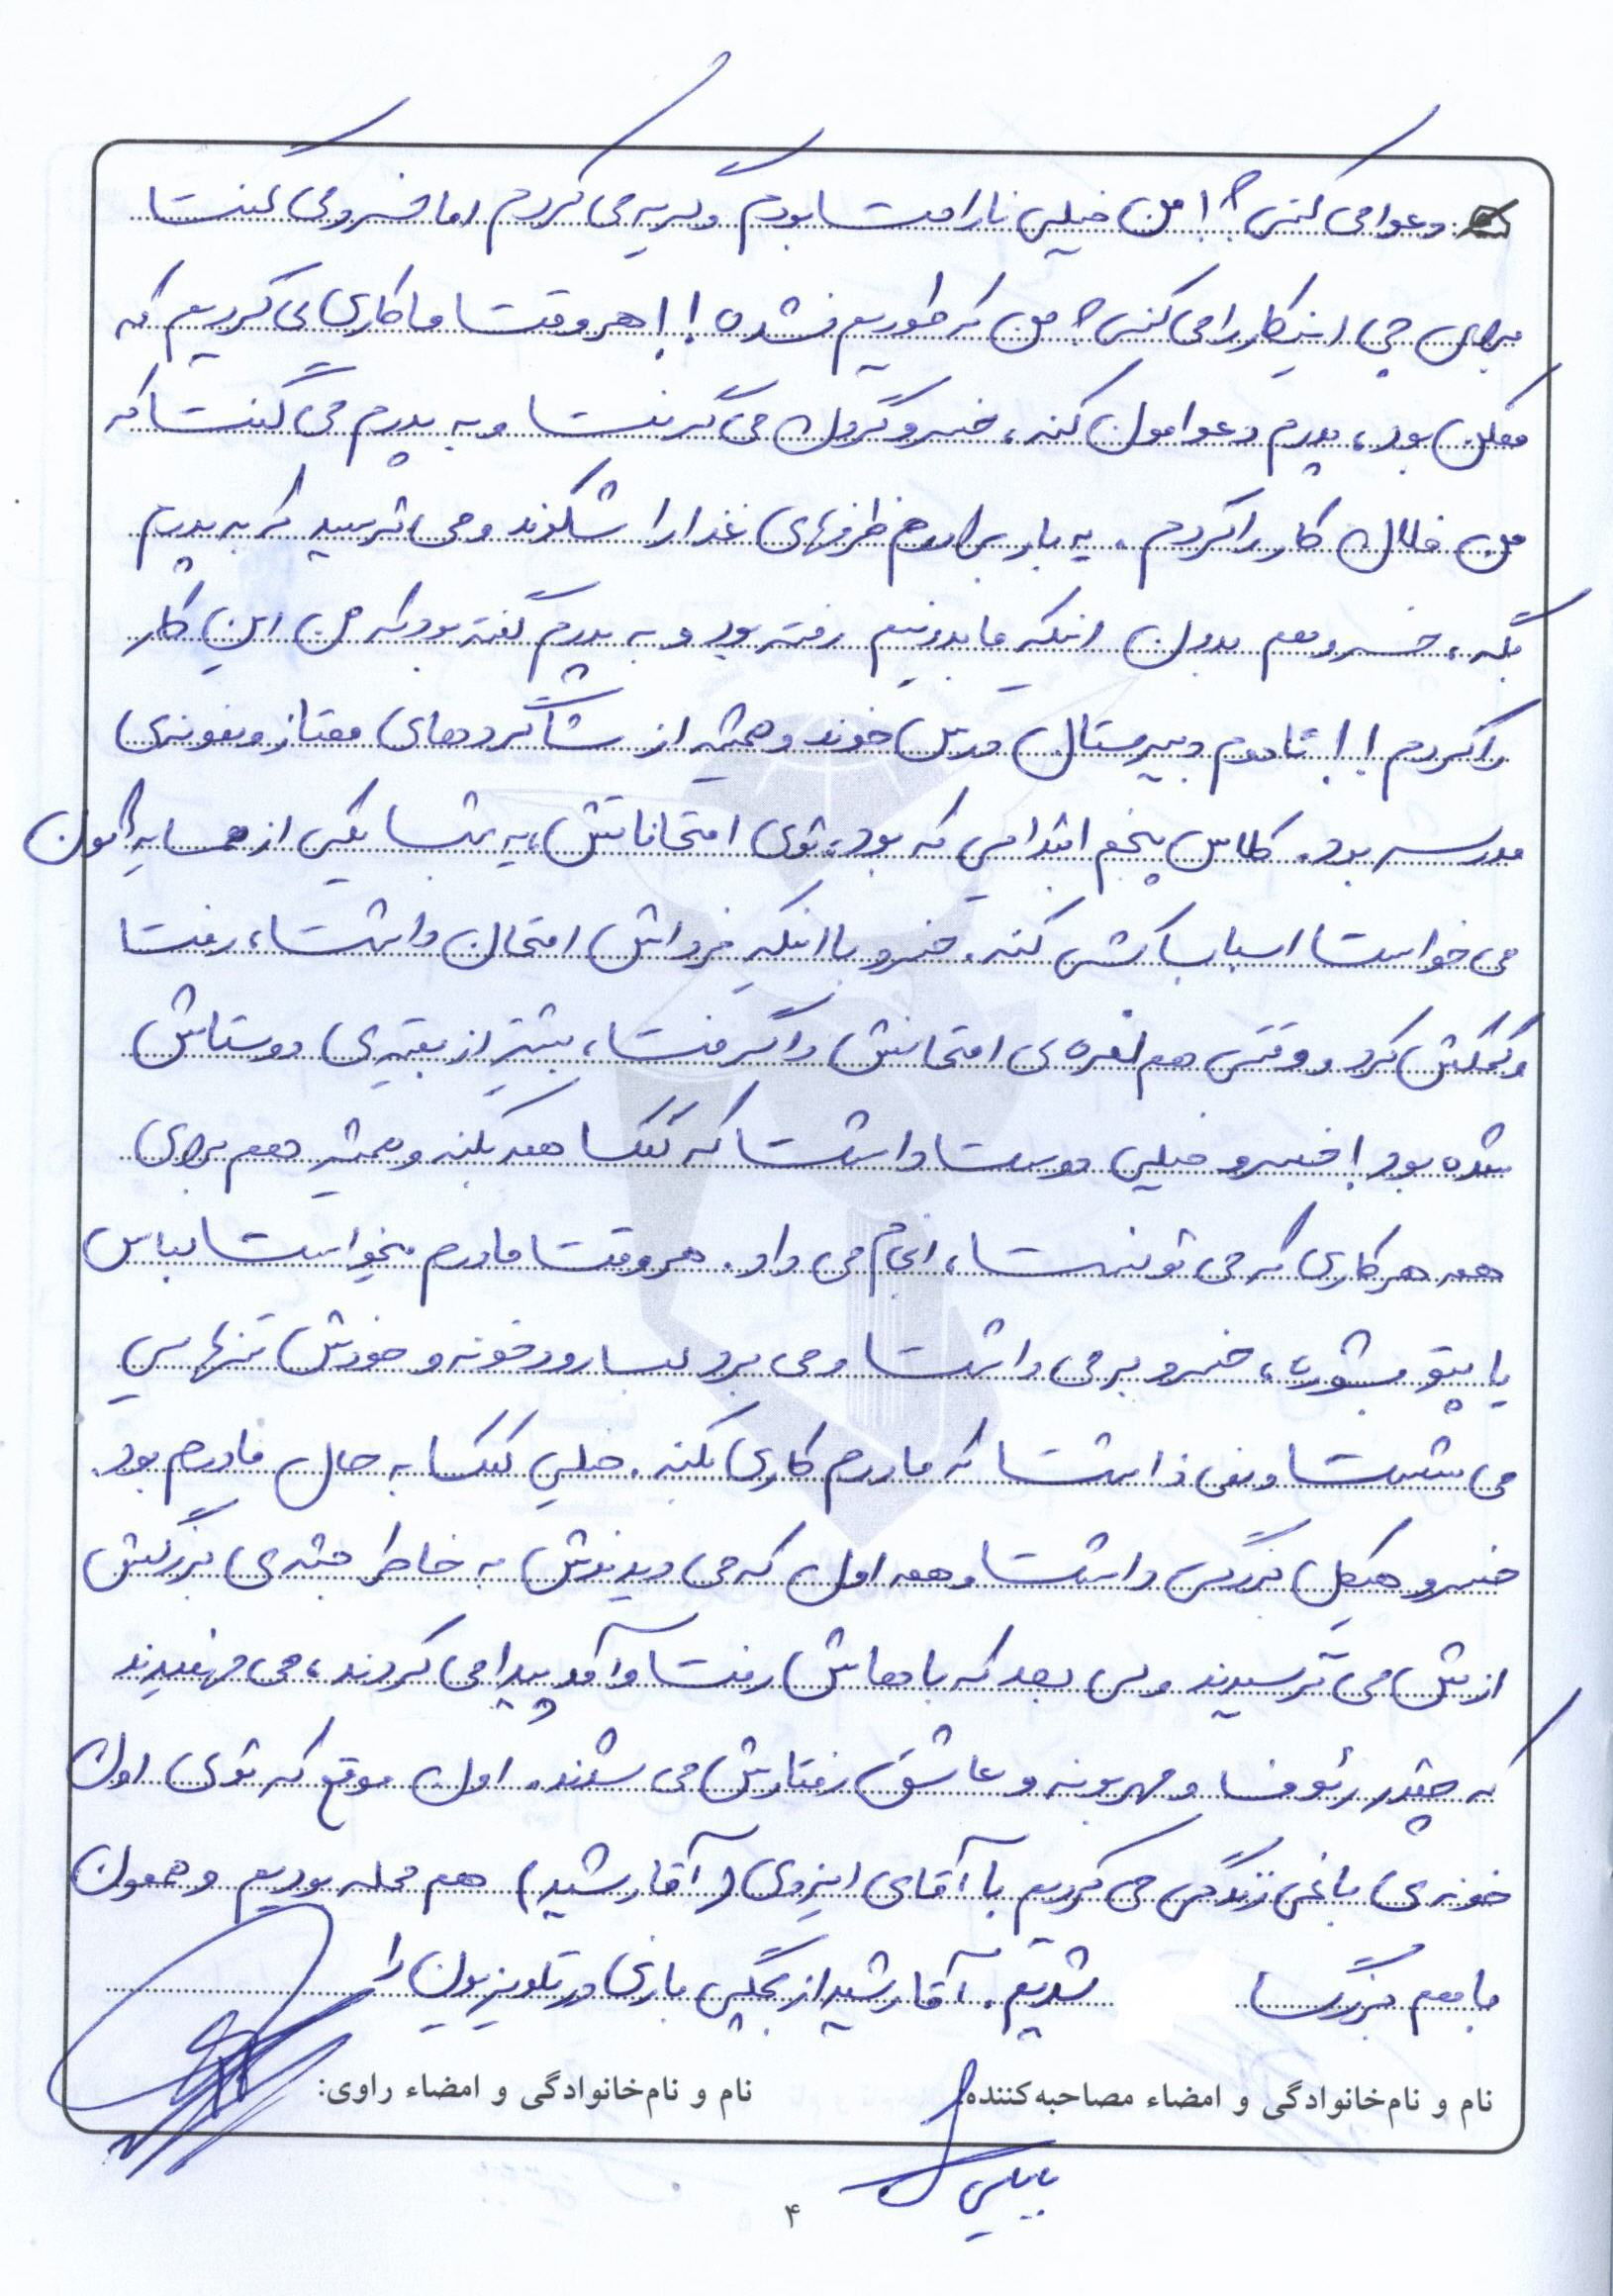 دعوا می کنی؟! من خیلی ناراحت بودم و گریه می کردم اما خسرو می گفت
برای چی اینکار را می کنی؟ من که طوریم نشده!! هر وقت ما کاری می کردیم که
ممکن بود، پدرم دعوامون کنه، خسرو گردن می گرفت و به پدرم می گفت که
من فلان کار را کردم. یه بار برادرم ظرفهای غذا را شکوند و می ترسید که به پدرم
بگه، خسرو هم بدون اینکه ما بدونیم رفته بود و به پدرم گفته بود که من این کار
را کردم!! تا دوم دبیرستان درس خوند و همیشه از شاگردهای ممتاز و نمونه ی
مدرسه بود. کلاس پنجم ابتدایی که بود، توی امتحاناتش، یه شب یکی از همسایه امون
می خواست اسباب کشی کنه. خسرو با اینکه فرداش امتحان داشت، رفت
و کمکش کرد و وقتی هم نمره ی امتحانش را گرفت، بیشتر از بقیه ی دوستاش
شده بود! خسرو خیلی دوست داشت که کمک همه بکنه و همیشه هم برای
همه هر کاری که می تونست، انجام می داد. هر وقت مادرم میخواست لباس
یا پتو بشوره، خسرو بر می داشت و می برد لب رودخونه و خودش تنهایی
می شست و نمی ذاشت که مادرم کاری بکنه. خیلی کمک به حال مادرم بود.
خسرو هیکل بزرگی داشت و همه اول که می دیدندش به خاطر جثه ی بزرگش
ازش می ترسیدند ولی بعد که باهاش رفت و آمد پیدا می کردند، می فهمیدند
که چقدر رئوف و مهربونه و عاشق رفتارش می شدند. اول موقع که توی اون
خونه ی باغی زندگی می کردیم با آقای ایزدی (آقا رشید) هم محله بودیم و همون
جا هم بزرگ شدیم. آقا رشید از بچگی بازی در تلویزیون را
نام و نام‌خانوادگی و امضاء مصاحبه‌کننده:
نام و نام‌خانوادگی و امضاء راوی:
۴